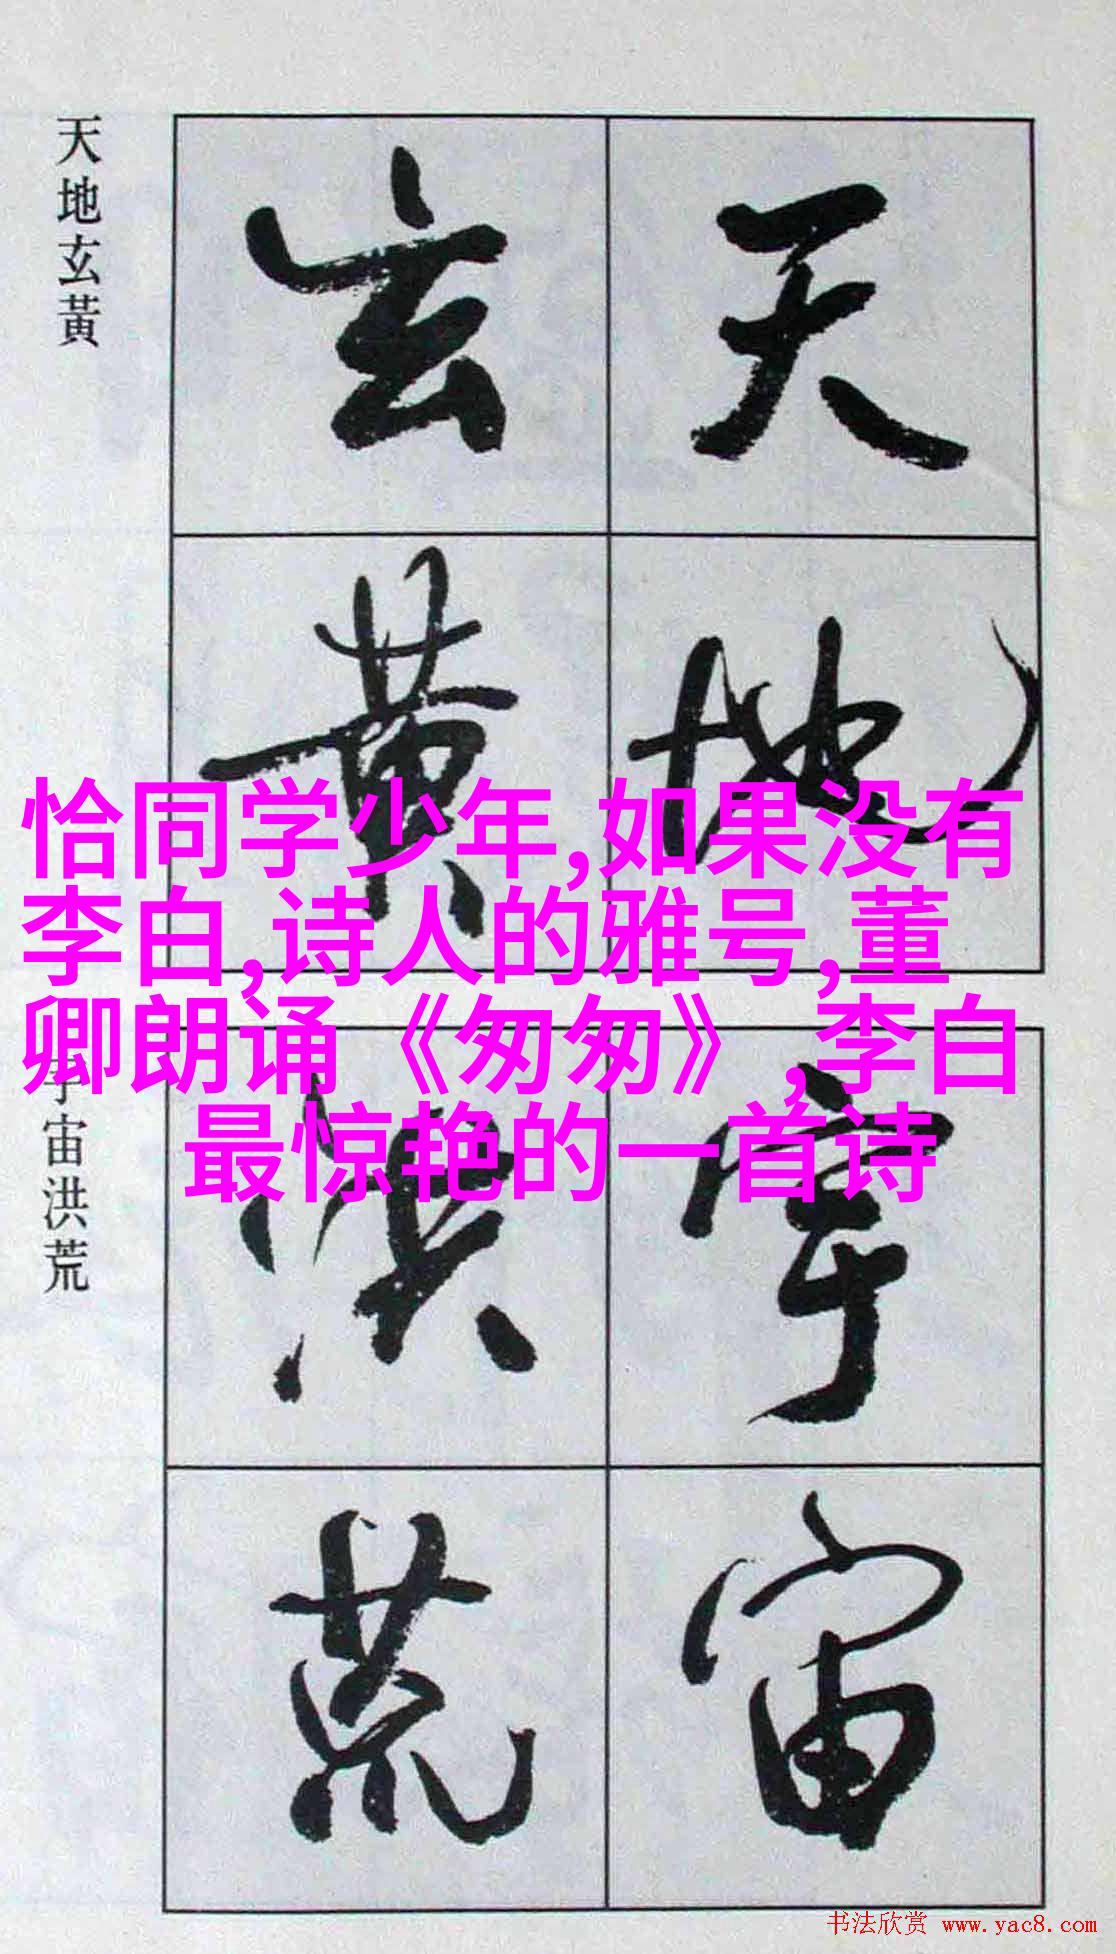 天地玄黃
天地
玄黄
恰同学少年,如果没有
李白,诗人的雅号,董
卿朗诵《匆匆》,李白
最惊艳的一首诗
宇宙洪荒
宇宙
洪荒
书法欣赏 www.yac8.com